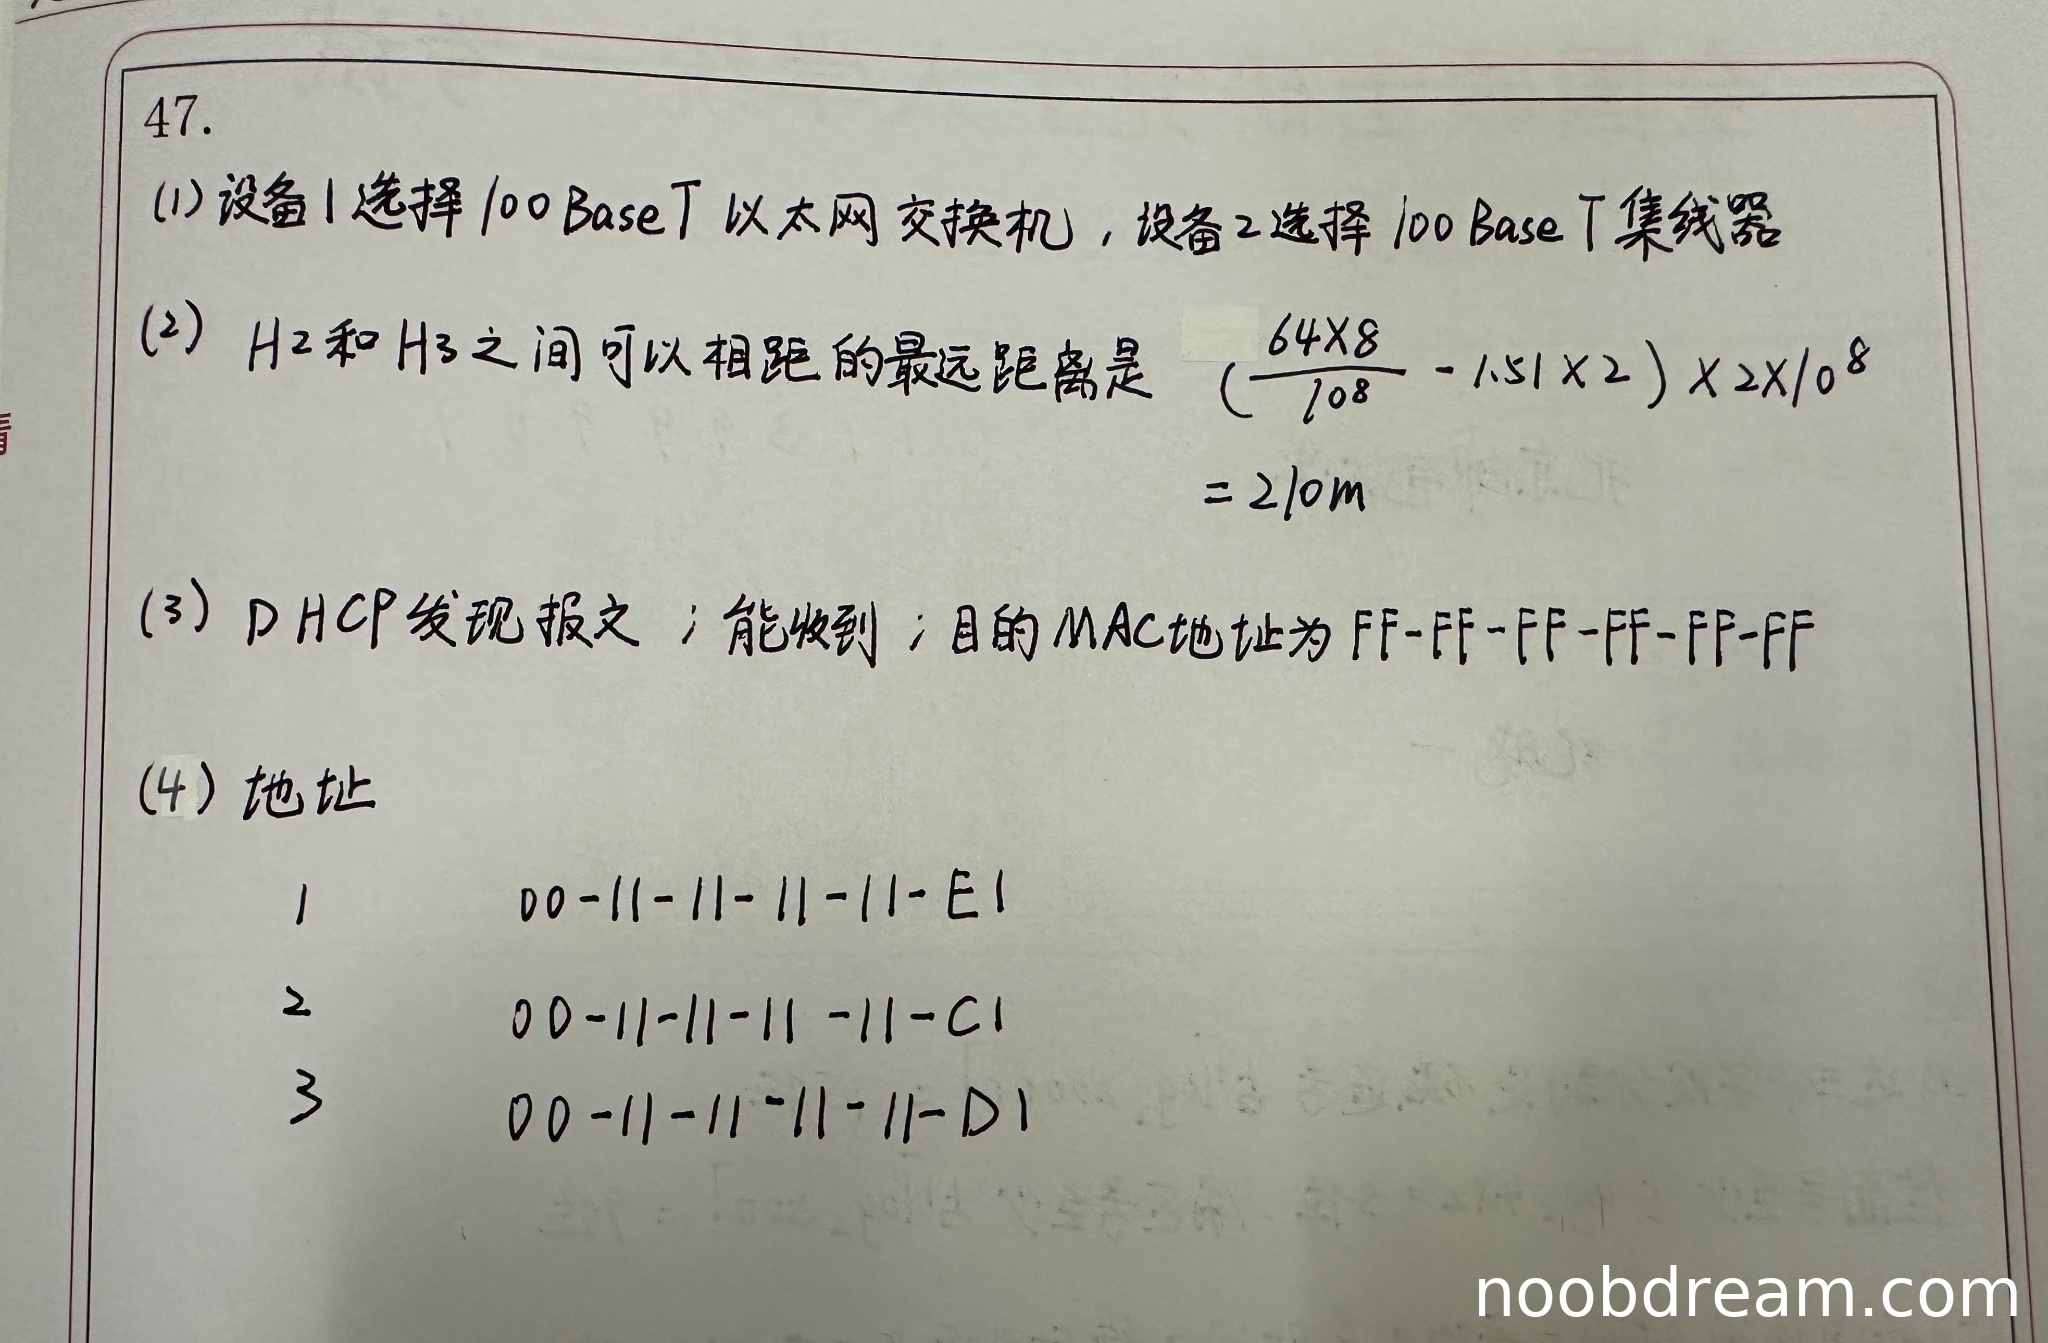 47.
(1) 设备1选择100BaseT以太网交换机，设备2选择100BaseT集线器
(2) H2和H3之间可以相距的最远距离是 (64×8/10⁸ - 1.51×2)×2×10⁸
=210m
(3) DHCP发现报文；能收到；目的MAC地址为FF-FF-FF-FF-FF-FF
(4) 地址
1 00-11-11-11-11-E1
2 00-11-11-11-11-C1
3 00-11-11-11-11-D1
noobdream.com